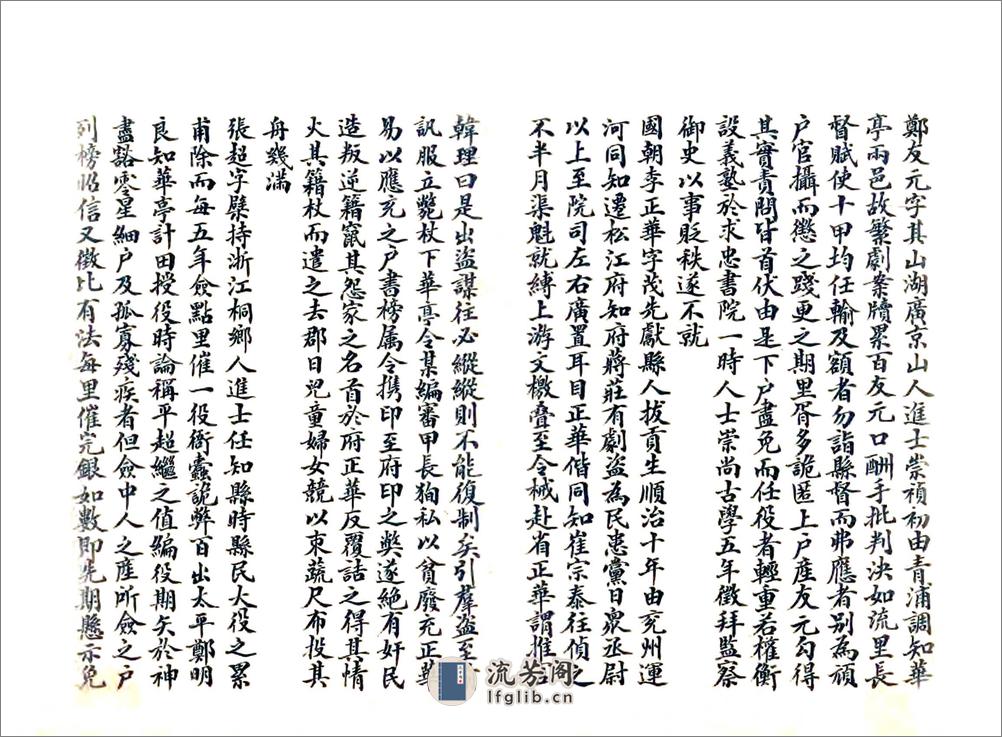 鄭友元字其山湖廣京山人進士崇禎初由青浦調知華
亭兩邑故繁劇案牘累百友元口酬手批判決如流里長
督賦使十甲均任輸及額者勿詣縣督而弗應者別為頑
户官攝而懲之踐更之期里胥多詭匿上户產友元勾得
其實責問皆首伏由是下户盡免而任役者輕重若權衡
設義塾於求忠書院一時人士崇尚古學五年徵拜監察
御史以事貶秩遂不就
國朝李正華字茂先獻縣人拔貢生順治十年由兗州運
河同知遷松江府知府蔣莊有劇盜為民患黨日衆丞尉
以上至院司左右廣置耳目正華偕同知崔宗泰往偵之
不半月渠魁就縛上游文檄疊至令械赴省正華謂推官
韓理曰是出盜謀往必縱縱則不能復制矣引羣盜至
訊服立斃杖下華亭令某編審甲長狥私以貧廢充正華
易以應充之户書榜属令携印至府印之獘遂絶有奸民
造叛逆籍竄其怨家之名首於府正華反覆詰之得其情
火其籍杖而遣之去郡日兒童婦女競以束蔬尺布投其
舟幾滿
張超字檗持浙江桐鄉人進士任知縣時縣民大役之累
甫除而每五年僉點里催一役衙蠹詭弊百出太平鄭明
良知華亭計田授役時論稱平超繼之值編役期矢於神
盡豁零星細户及孤寡殘疾者但僉中人之產所僉之户
列榜昭信又徵比有法每里催完銀如數即先期懸示免
流芳阁
lfglib.cn